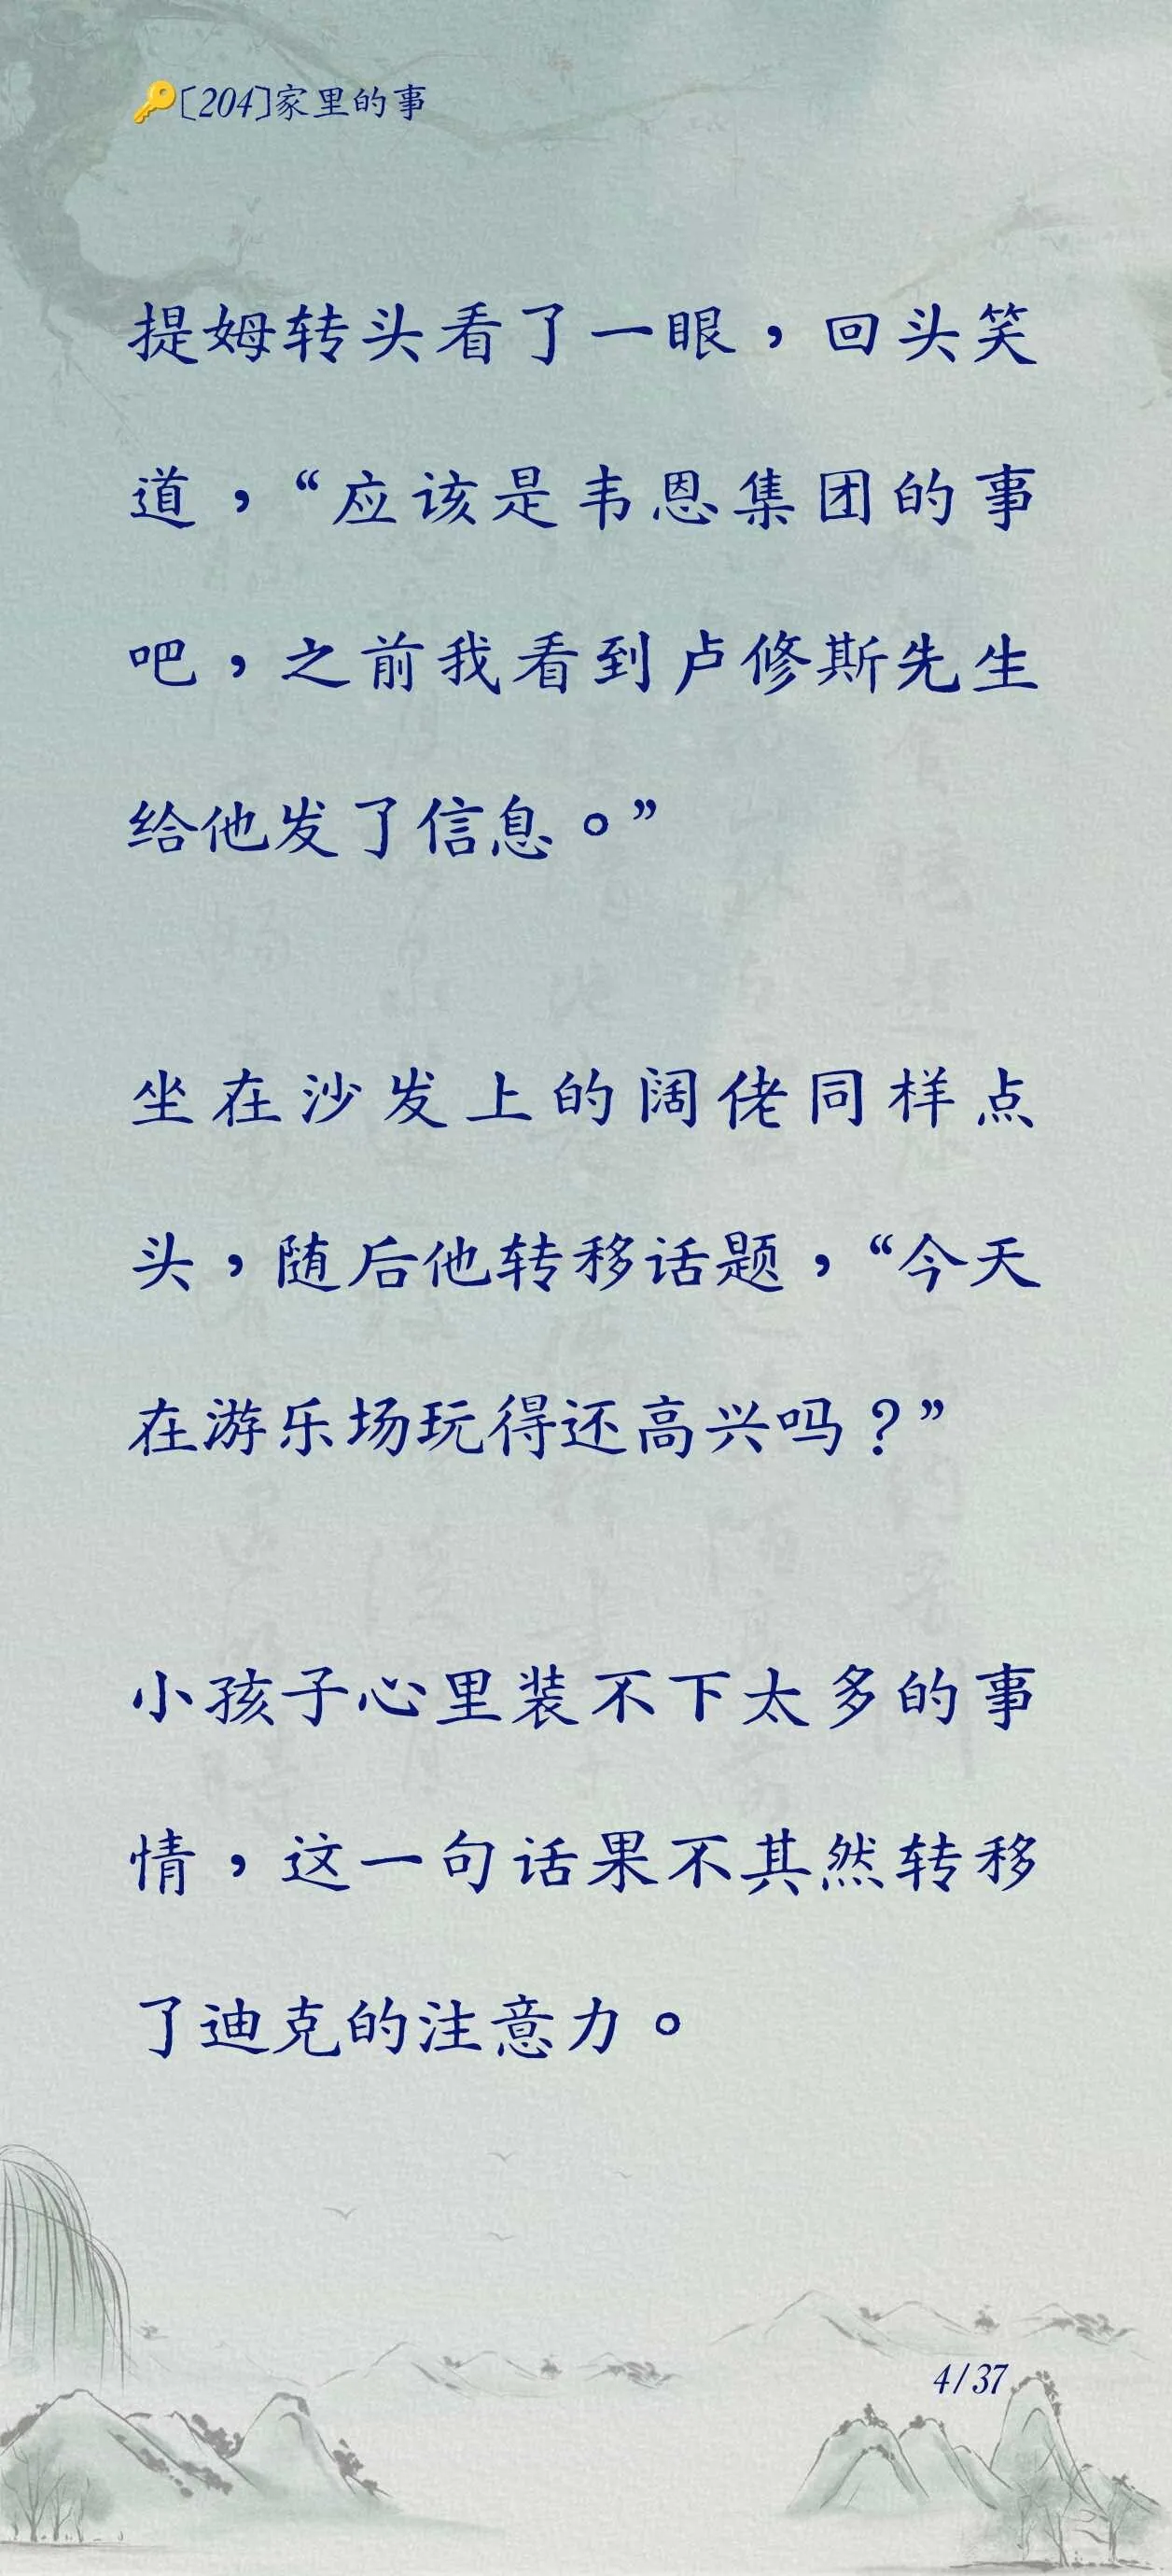 🔑[204]家里的事
提姆转头看了一眼，回头笑
道，“应该是韦恩集团的事
吧，之前我看到卢修斯先生
给他发了信息。”
坐在沙发上的阔佬同样点
头，随后他转移话题，“今天
在游乐场玩得还高兴吗？”
小孩子心里装不下太多的事
情，这一句话果不其然转移
了迪克的注意力。
4/37